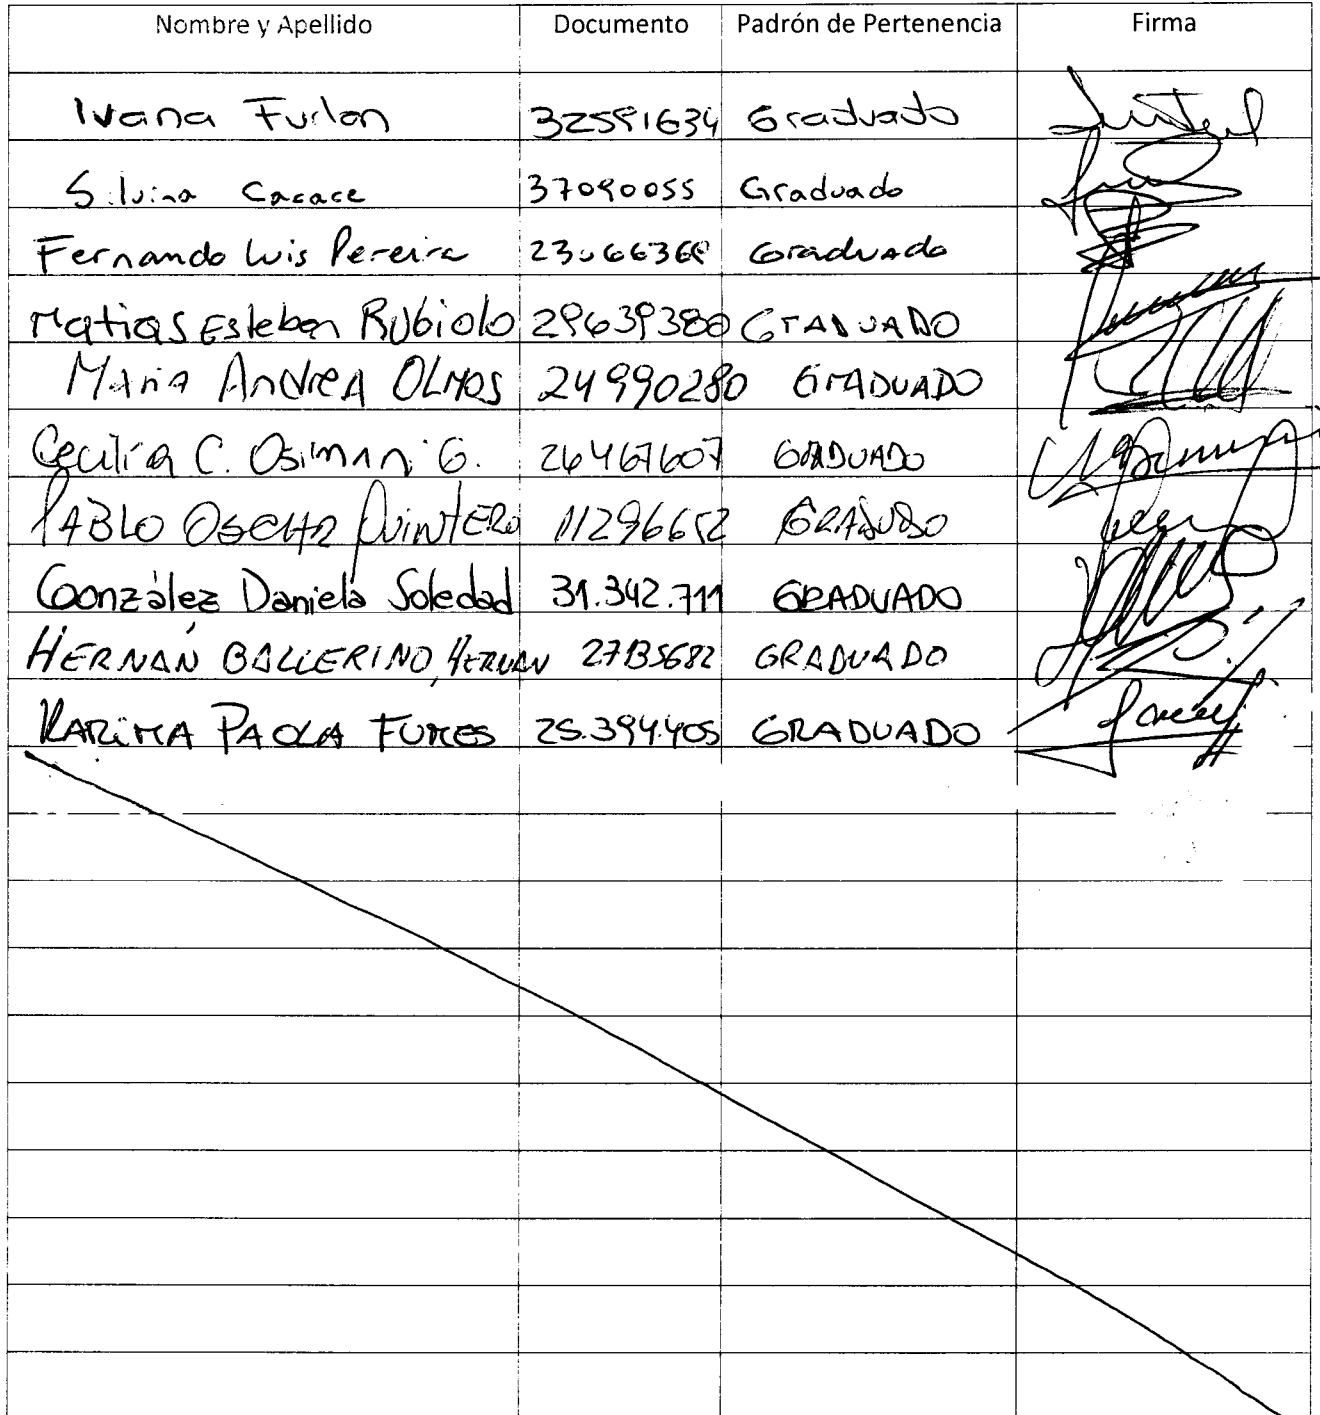 Nombre y Apellido Documento Padrón de Pertenencia Firma
Ivana Furlan 32591634 Graduado
Silvina Cacace 37090055 Graduado
Fernando Luis Pereira Graduado
Matias Esteban Rubiolo 29639380 GRADUADO
Maria Andrea OLMOS 24990280 GRADUADO
Cecilia C. Osimani G. 26467607 GRADUADO
PABLO OSCAR QUINTERO 11296652 GRADUADO
González Daniela Soledad 31.342.711 GRADUADO
HERNÁN BALLERINO, HERNAN 27135682 GRADUADO
KARINA PAOLA FUNES 25.394.405 GRADUADO